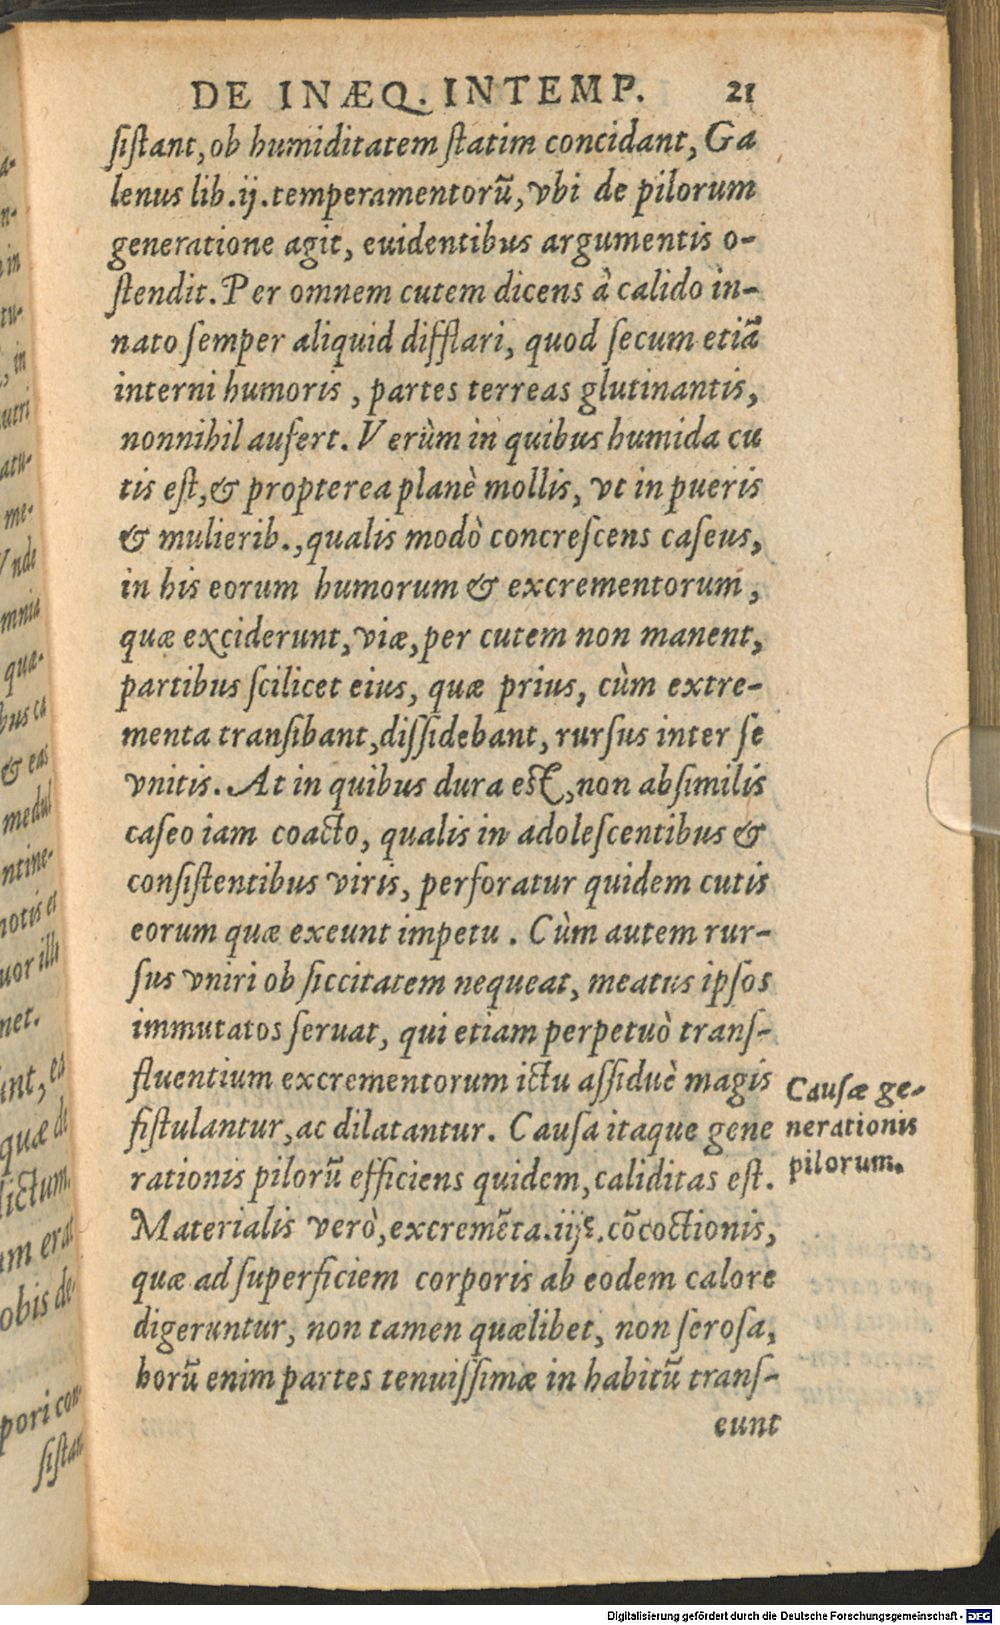 DE INÆQ. INTEMP. 21
ſiſtant, ob humiditatem ſtatim concidant, Ga
lenus lib.ij.temperamentorū, vbi de pilorum
generatione agit, euidentibus argumentis o-
ſtendit. Per omnem cutem dicens à calido in-
nato ſemper aliquid difflari, quod ſecum etiā
interni humoris, partes terreas glutinantis,
nonnihil aufert. Verùm in quibus humida cu
tis eſt, & propterea planè mollis, vt in pueris
& mulierib., qualis modò concreſcens caſeus,
in his eorum humorum & excrementorum,
quæ exciderunt, viæ, per cutem non manent,
partibus ſcilicet eius, quæ prius, cùm extre-
menta tranſibant, diſſidebant, rurſus inter ſe
vnitis. At in quibus dura est, non abſimilis
caſeo iam coacto, qualis in adoleſcentibus &
conſiſtentibus viris, perforatur quidem cutis
eorum quæ exeunt impetu. Cùm autem rur-
ſus vniri ob ſiccitatem nequeat, meatus ipſos
immutatos ſeruat, qui etiam perpetuò tranſ-
fluentium excrementorum ictu aſſiduè magis
fiſtulantur, ac dilatantur. Cauſa itaque gene
rationis pilorū efficiens quidem, caliditas eſt.
Materialis verò, excremēta.iij. cōcoctionis,
quæ ad ſuperficiem corporis ab eodem calore
digeruntur, non tamen quælibet, non ſeroſa,
horū enim partes tenuiſſimæ in habitū tranſ-
eunt
Cauſæ ge-
nerationis
pilorum.
a-
n-
in
tu-
in
utri
atu-
me-
Vnde
mnia
quæ-
bus ca
& eas
medul
ntine-
notis et
uor illi
net.
unt, ea
quæ de
dictum.
um erat
obis de-
pori con-
ſiſtan
Digitalisierung gefördert durch die Deutsche Forschungsgemeinschaft - DFG